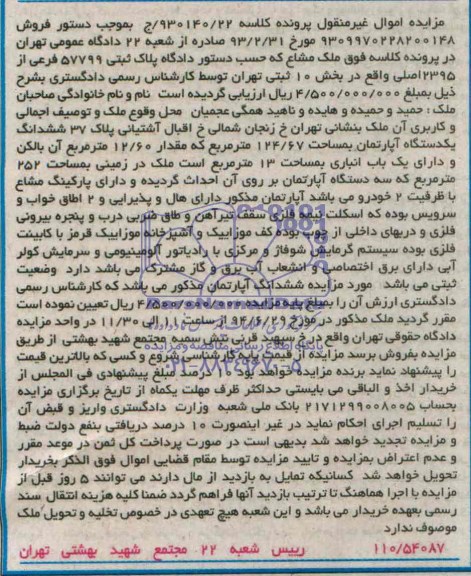 مزایده اموال غیرمنقول پرونده کلاسه ۹۳۰۱۴۰/۲۲/ج بموجب دستور فروش
۹۳۰۹۹۷۰۲۲۸۲۰۰۱۴۸ مورخ ۹۳/۲/۳۱ صادره از شعبه ۲۲ دادگاه عمومی تهران
در پرونده کلاسه فوق ملک مشاع که حسب دستور دادگاه پلاک ثبتی ۵۷۷۹۹ فرعی از
۲۳۹۵اصلی واقع در بخش ۱۰ ثبتی تهران توسط کارشناس رسمی دادگستری بشرح
ذیل بمبلغ ۴/۵۰۰/۰۰۰/۰۰۰ ریال ارزیابی گردیده است نام و نام خانوادگی صاحبان
ملک : حمید و حمیده و هایده و ناهید همگی عجمیان محل وقوع ملک و توصیف اجمالی
و کاربری آن ملک بنشانی تهران خ زنجان شمالی خ اقبال آشتیانی پلاک ۳۷ ششدانگ
یکدستگاه آپارتمان بمساحت ۱۲۴/۶۷ مترمربع که مقدار ۱۲/۶۰ مترمربع آن بالکن
و دارای یک باب انباری بمساحت ۱۳ مترمربع است ملک در زمینی بمساحت ۲۵۲
مترمربع که سه دستگاه آپارتمان بر روی آن احداث گردیده و دارای پارکینگ مشاع
با ظرفیت ۲ خودرو می باشد آپارتمان مذکور دارای هال و پذیرایی و ۲ اطاق خواب و
سرویس بوده که اسکلت نیمه فلزی سقف تیرآهن و طاق ضربی درب و پنجره بیرونی
فلزی و دربهای داخلی از چوب بوده کف موزاییک و آشپزخانه موزاییک قرمز با کابینت
فلزی بوده سیستم گرمایش شوفاژ و مرکزی با رادیاتور آلومینیومی و سرمایش کولر
آبی دارای برق اختصاصی و انشعاب آب برق و گاز مشترک می باشد دارد وضعیت
ثبتی می باشد مورد مزایده ششدانگ آپارتمان مذکور می باشد که کارشناس رسمی
دادگستری ارزش آن را بمبلغ پایه مزایده ۴/۵۰۰/۰۰۰/۰۰۰ ریال تعیین نموده است
مقرر گردید ملک مذکور در مورخ ۹۴/۶/۲۹ از ساعت ۱۱ الی ۱۱/۳۰ در واحد مزایده
دادگاه حقوقی تهران واقع در خ سپهبد قرنی نبش سمیه مجتمع شهید بهشتی از طریق
مزایده بفروش برسد مزایده از قیمت پایه کارشناسی شروع و کسی که بالاترین قیمت
را پیشنهاد نماید برنده مزایده خواهد بود ۱۰ درصد مبلغ پیشنهادی فی المجلس از
خریدار اخذ و الباقی می بایستی حداکثر ظرف مهلت یکماه از تاریخ برگزاری مزایده
بحساب ۲۱۷۱۲۹۹۰۰۸۰۰۵ بانک ملی شعبه وزارت دادگستری واریز و قبض آن
را تسلیم اجرای احکام نماید در غیر اینصورت ۱۰ درصد دریافتی بنفع دولت ضبط
و مزایده تجدید خواهد شد بدیهی است در صورت پرداخت کل ثمن در موعد مقرر
و عدم اعتراض بمزایده و تایید مزایده توسط مقام قضایی اموال فوق الذکر بخریدار
تحویل خواهد شد کسانیکه تمایل به بازدید از مال دارند می توانند ۵ روز قبل از
مزایده با اجرا هماهنگ تا ترتیب بازدید آنها فراهم گردد ضمنا کلیه هزینه انتقال سند
رسمی بعهده خریدار می باشد و این شعبه هیچ تعهدی در خصوص تخلیه و تحویل ملک
موصوف ندارد
۱۱۰/۵۴۰۸۷ رییس شعبه ۲۲ مجتمع شهید بهشتی تهران